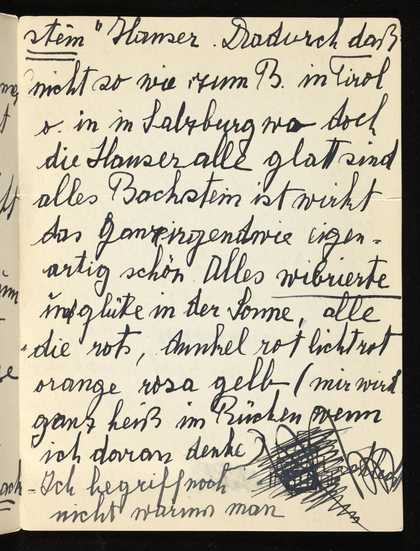 stein" Hauser. Dadurch daß
nicht so wie zum B. in Tirol
o. in in Salzburg wo doch
die Hauser alle glatt sind
alles Bachstein ist wirkt
das Ganze irgendwie eigen-
artig schön. Alles wibrierte
und glüte in der Sonne, alle
die rots, dunkel rot lichtrot
orange rosa gelb (mir wird
ganz heiß im Rücken wenn
ich daran denke)
Ich begriff noch
nicht warum man